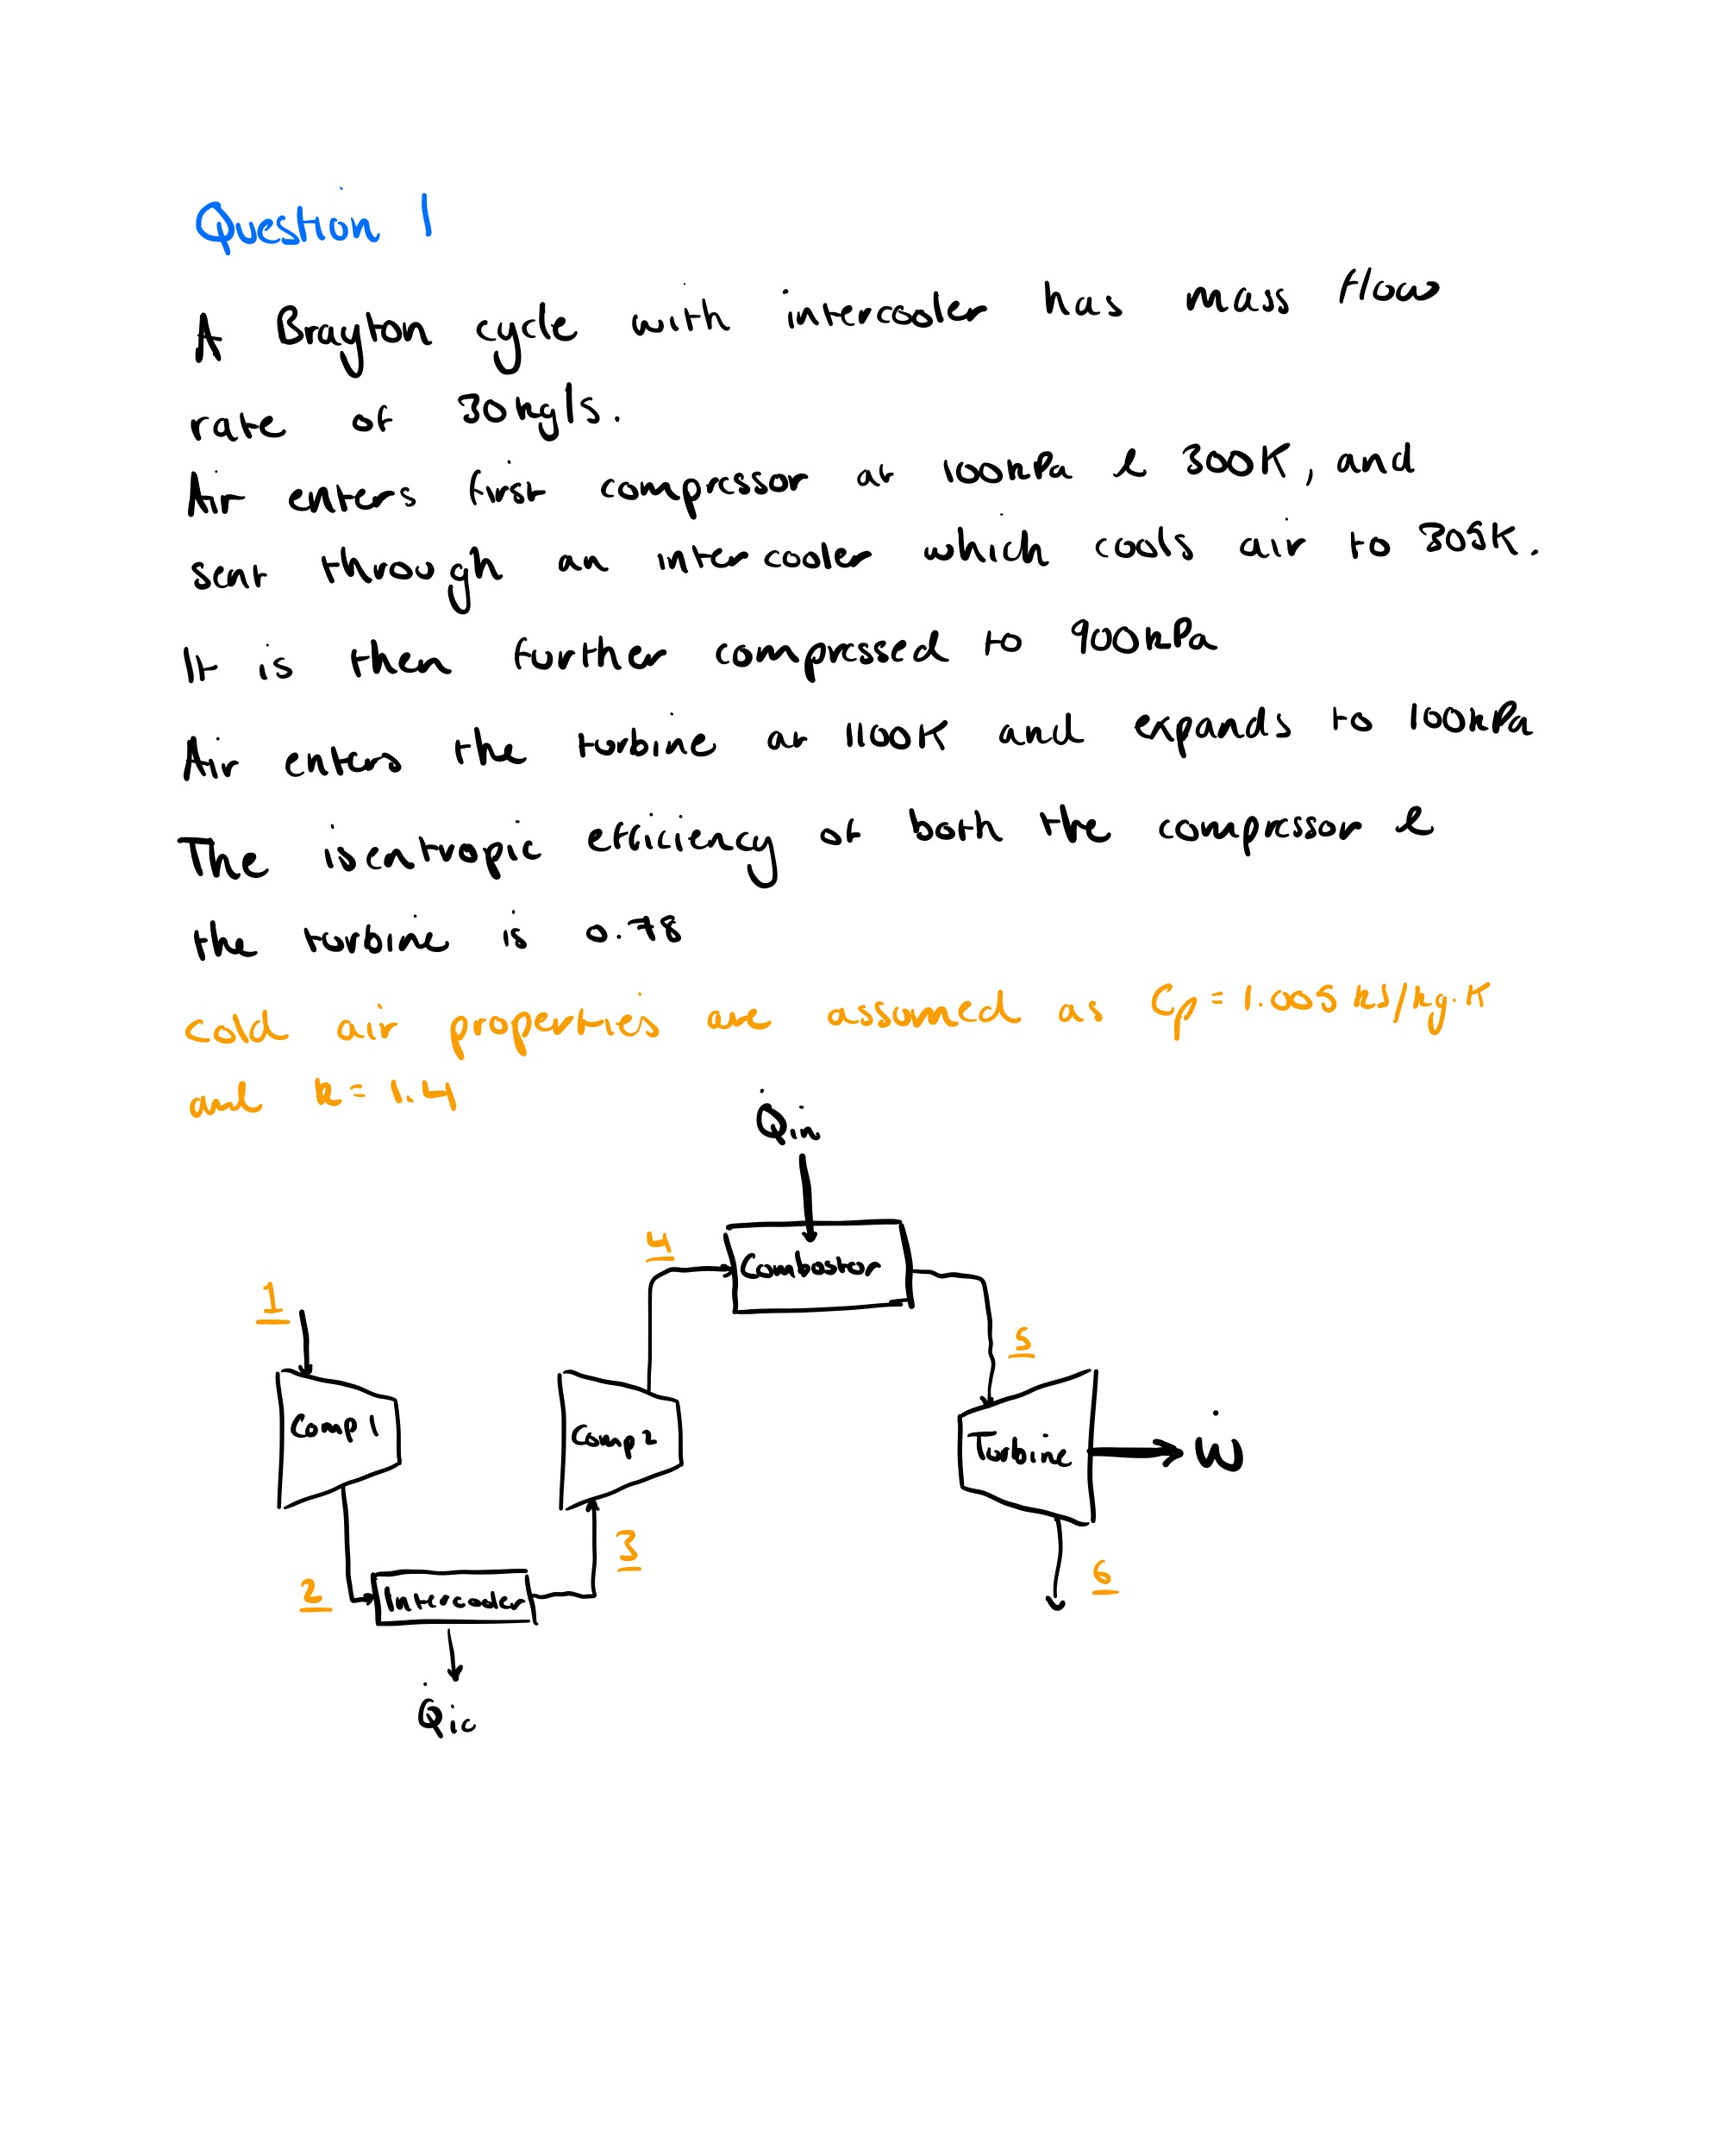 Question 1
A Brayton cycle with intercooler has mass flow
rate of 30kg/s.
Air enters first compressor at 100kPa & 300K, and
sent through an intercooler which cools air to 305K.
It is then further compressed to 900kPa
Air enters the turbine at 1100K and expands to 100kPa
The isentropic efficiency of both the compressor &
the turbine is 0.78
Cold air properties are assumed as Cp = 1.005 kJ/kg.K
and k = 1.4
Q̇in
4
Combustor
1
5
Comp 1
Comp 2
Turbine
Ẇ
3
2
Intercooler
6
Q̇ic